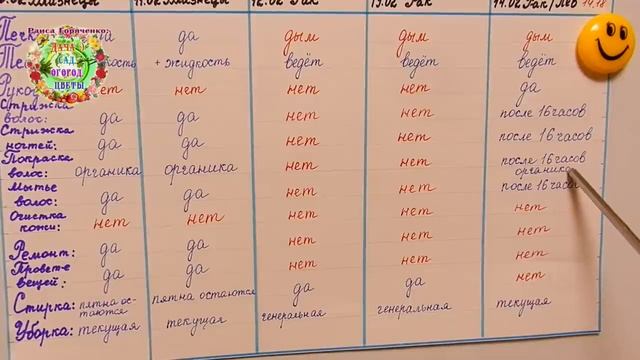 11.02 Близнецы 12.02 Рак 13.02 Рак 14.02 Рак/Лев 14.18
Раиса Горяченко:
ДАЧА
САД
ОГОРОД
ЦВЕТЫ
да дым дым дым
+ жидкость ведёт ведёт ведёт
нет нет нет нет да
Стрижка
волос: да да нет нет после 16 часов
Стрижка
ногтей: да да нет нет после 16 часов
Покраска
волос: органика органика нет нет после 16 часов
органика
Мытьё
волос: да да нет нет после 16 часов
Очистка
кожи: нет нет нет нет нет
Ремонт: да да нет нет нет
вещей: да да нет нет нет
Стирка: пятна ос-
таются пятна остаются да да нет
Уборка: текущая текущая генеральная генеральная текущая